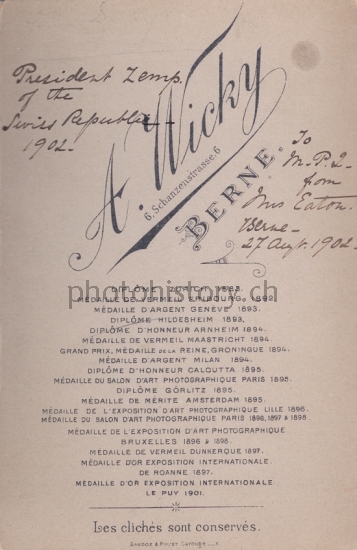 President Zemp.
of the
Swiss Republic
1902.
A. Wicky
6, Schanzenstrasse, 6
BERNE.
To
M.P.2.
from
Mrs Eaton.
Berne
27 Augt. 1902.
photohistory.ch
DIPLÔME ZURICH 1883.
MÉDAILLE DE VERMEIL FRIBOURG 1892.
MÉDAILLE D'ARGENT GENÈVE 1893.
DIPLÔME HILDESHEIM 1893,
DIPLÔME D'HONNEUR ARNHEIM 1894.
MÉDAILLE DE VERMEIL MAASTRICHT 1894.
GRAND PRIX, MÉDAILLE DE LA REINE, GRONINGUE 1894.
MÉDAILLE D'ARGENT MILAN 1894.
DIPLÔME D'HONNEUR CALCUTTA 1895.
MÉDAILLE DU SALON D'ART PHOTOGRAPHIQUE PARIS 1895.
DIPLÔME GÖRLITZ 1895.
MÉDAILLE DE MÉRITE AMSTERDAM 1895.
MÉDAILLE DE L'EXPOSITION D'ART PHOTOGRAPHIQUE LILLE 1896.
MÉDAILLE DU SALON D'ART PHOTOGRAPHIQUE PARIS 1896, 1897 & 1898
MÉDAILLE DE L'EXPOSITION D'ART PHOTOGRAPHIQUE
BRUXELLES 1896 & 1898.
MÉDAILLE DE VERMEIL DUNKERQUE 1897.
MÉDAILLE D'OR EXPOSITION INTERNATIONALE
DE ROANNE 1897.
MÉDAILLE D'OR EXPOSITION INTERNATIONALE
LE PUY 1901.
Les clichés sont conservés.